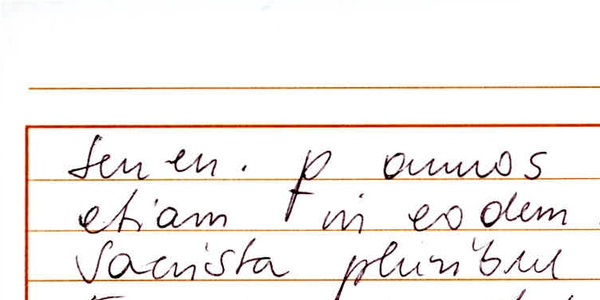 Senen. p annos
etiam in eodem
Sacrista pluribus